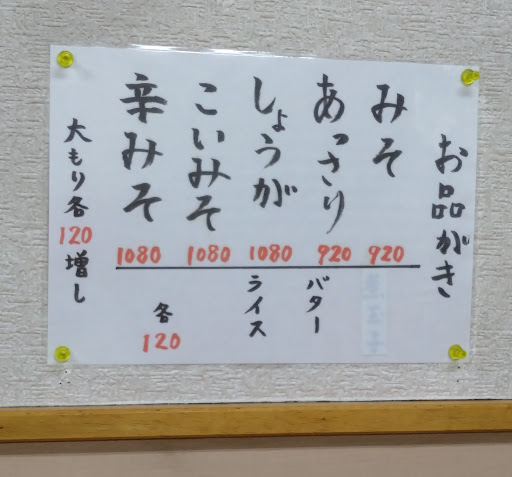 お品がき
みそ 920
あっさり 920
しょうが 1080
こいみそ 1080
辛みそ 1080
バター
ライス
各120
大もり各120増し